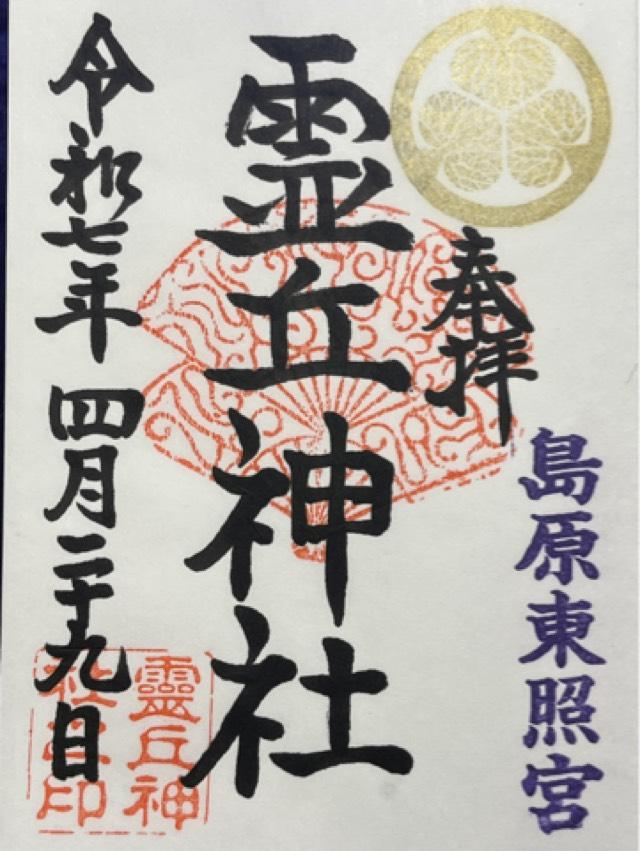 奉拝
島原東照宮
霊丘神社
令和七年 四月二十九日
靈丘神
社之印